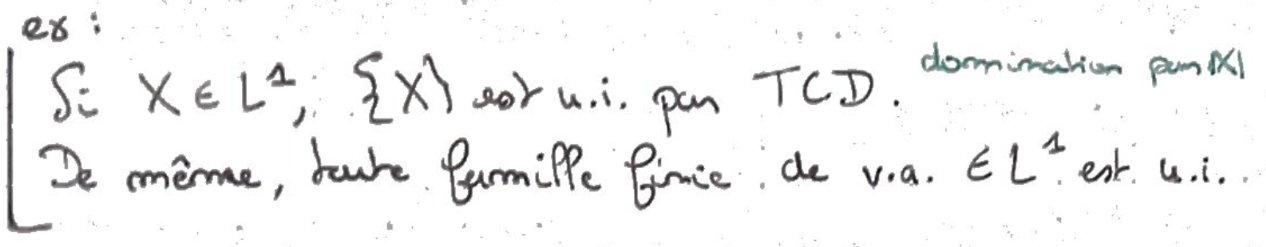 ex :
Si X ∈ L¹, {X} est u.i. par TCD. domination par |X|
De même, toute famille finie de v.a. ∈ L¹ est u.i.